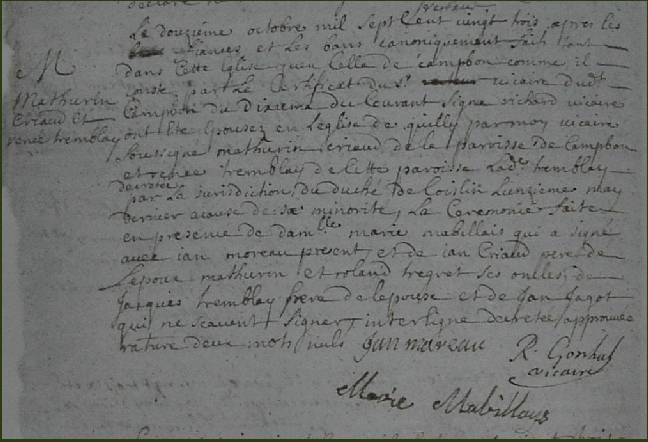 Le douziéme octobre mil sept cent vingt trois apres les
fiances et les bans canoniquement fait tant
dans cette Eglise que celle de campbon comme il
conste par Le Certificat du Sr vicaire dudt
Campbon du Dixieme du Courant Signé richard vicaire
M
Mathurin
Criaud et
renée tremblay
ont été Epousez en Leglise de quilly par moy vicaire
Soussigné mathurin criaud de la paroisse de Campbon
et renée tremblay de cette paroisse Lade tremblay
decretée
par La Jurisdiction du duché De Coislin Lunzieme may
dernier acause de sa minorité, La Ceremonie faite
en presence de damlle marie mabillais qui a signé
avec ian moreau present, et de ian Criaud pere de
Lepoux mathurin et roland tregret ses oncles, de
Jacques tremblay frere de lepouse et de Jan Jagot
qui ne scavent Signer, interligne decretée approuvée
rature deux mots nuls Jan mareau R. Gonhal
vicaire
Marie Mabillays